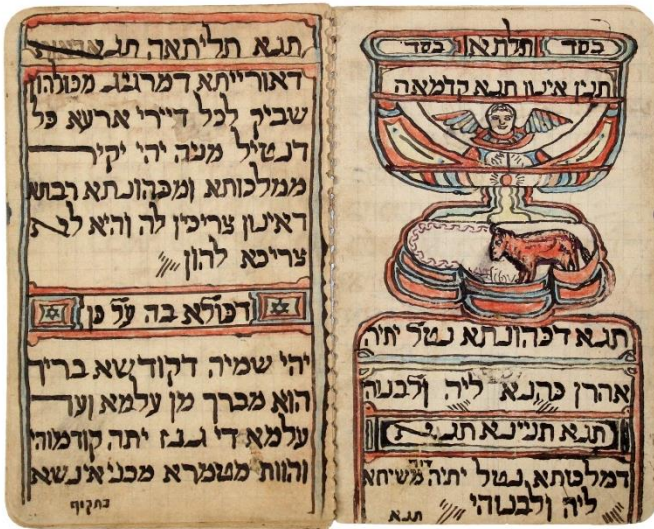 בסד תלתא בסד
תנין אינון תגא קדמאה
תגא דכהונתא נטל יתיה
אהרן כהנא ליה ולבנוה
תגא תנינא תגא
דמלכותא נטל יתיה דוד משיחא
ליה ולבנוהי
תגא
תגא תליתאה תגא
דאורייתא דמרגיג מכולהון
שביק לכל דיירי ארעא כל
דנטיל מניה יהי יקיר
ממלכותא ומכהונתא רבתא
דאינון צריכין לה והיא לית
צריכא להון
דכולא בה על כן
יהי שמיה דקודשא בריך
הוא מברך מן עלמא ועד
עלמא די גנז יתה קודמוהי
והוות מטמרא מבני אינשא
בתקיף